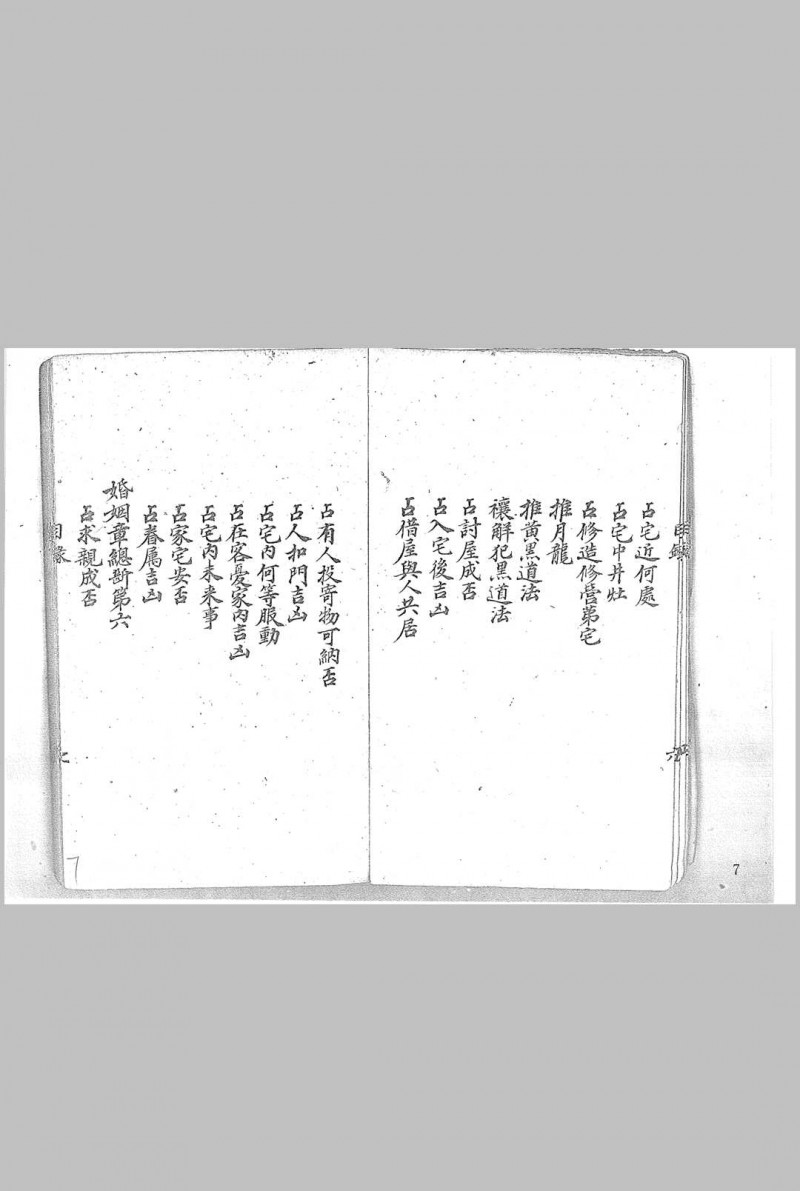 目錄
占宅近何處
占宅中井灶
占修造修营苐宅
推月龍
推黄黑道法
禳解犯黑道法
占討屋成否
占入宅後吉凶
占借屋與人共居
六
占有人投寄物可納否
占人扣門吉凶
占宅内何等服動
占在客憂家内吉凶
占宅内未来事
占家宅安否
占眷属吉凶
婚姻章總断苐六
占求親成否
目錄
七
7
7